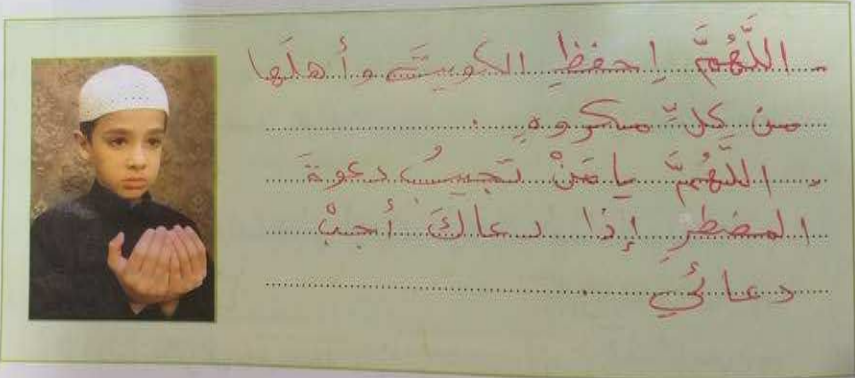 - اللَّهُمَّ احفظِ الكويتَ وأهلَها
من كلِّ مكروهٍ .
- اللَّهُمَّ يا مَنْ تجيبُ دعوةَ
المضطرِ إذا دعاكَ أجبْ
دعائي